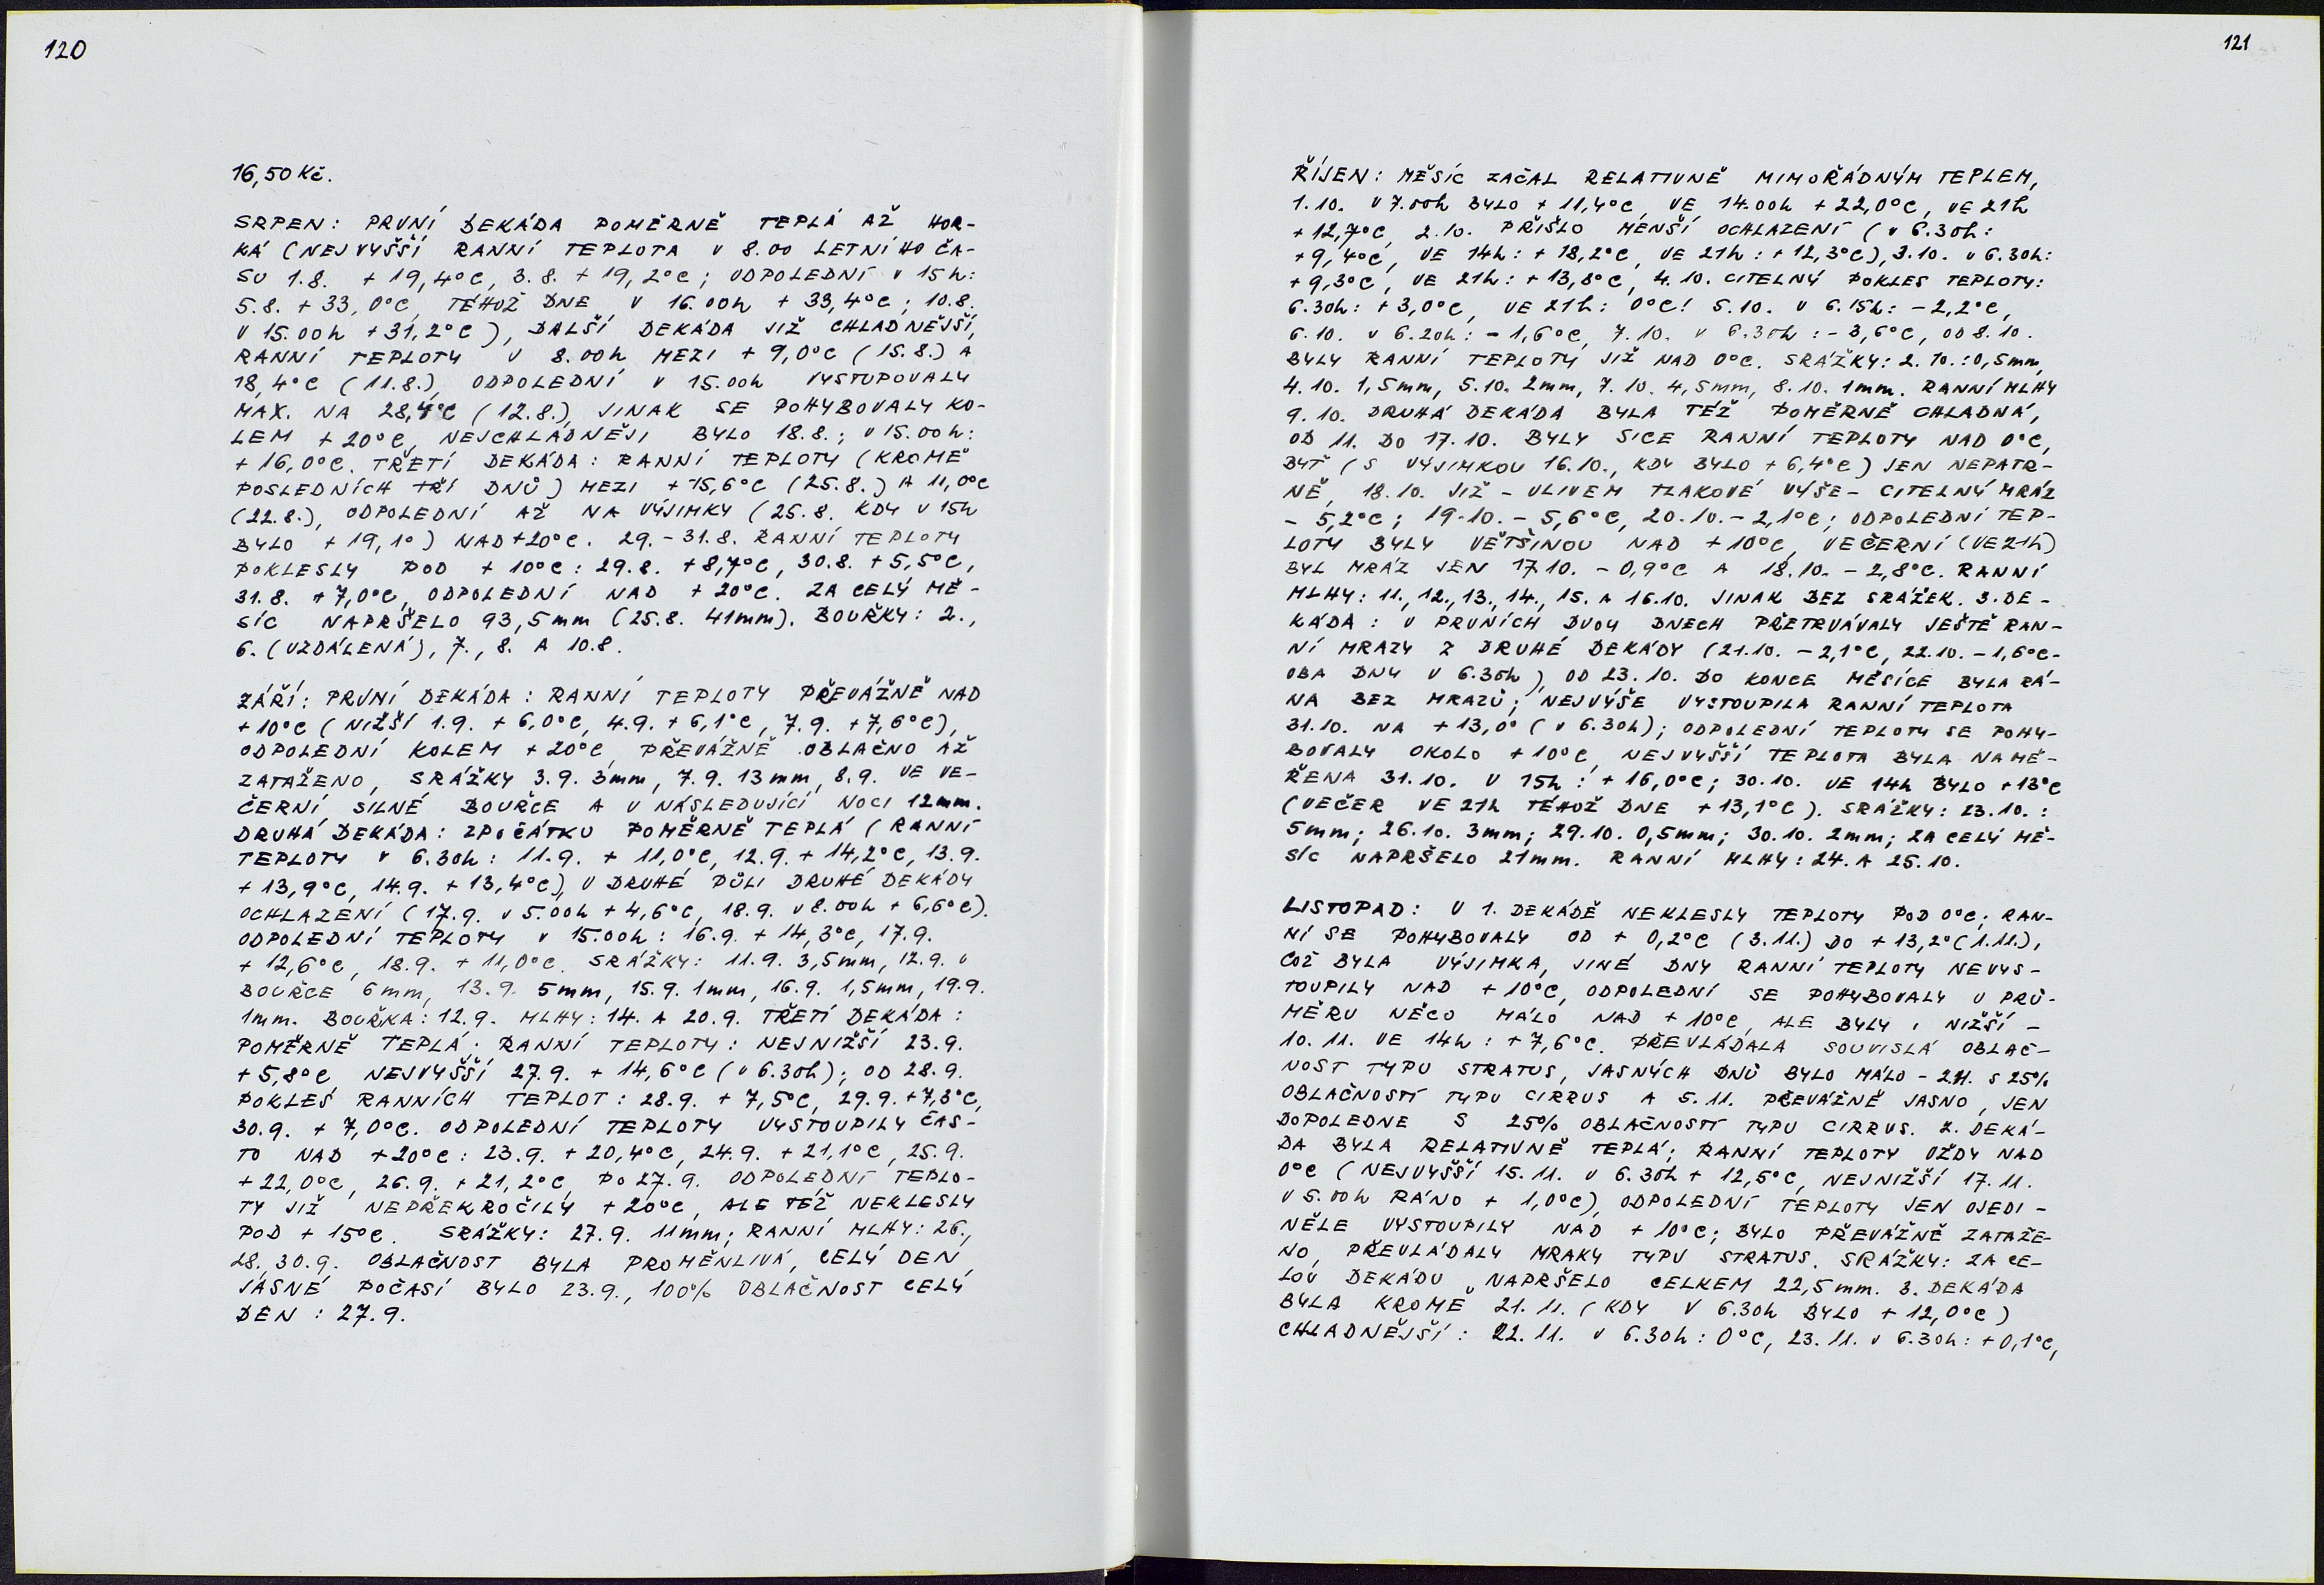 120
16,50 Kč.
SRPEN: PRVNÍ DEKÁDA POMĚRNĚ TEPLÁ AŽ HOR-
KÁ (NEJVYŠŠÍ RANNÍ TEPLOTA V 8.00 LETNÍHO ČA-
SU 1.8. +19,4°C, 3.8. +19,2°C; ODPOLEDNÍ V 15h:
5.8. +33,0°C, TÉHOŽ DNE V 16.00h +33,4°C; 10.8.
V 15.00h +31,2°C), DALŠÍ DEKÁDA JIŽ CHLADNĚJŠÍ,
RANNÍ TEPLOTY V 8.00h MEZI +9,0°C (15.8.) A
18,4°C (11.8.), ODPOLEDNÍ V 15.00h VYSTUPOVALY
MAX. NA 28,4°C (12.8.), JINAK SE POHYBOVALY KO-
LEM +20°C, NEJCHLADNĚJI BYLO 18.8.; V 15.00h:
+16,0°C. TŘETÍ DEKÁDA: RANNÍ TEPLOTY (KROMĚ
POSLEDNÍCH TŘÍ DNŮ) MEZI +15,6°C (25.8.) A 11,0°C
(22.8.), ODPOLEDNÍ AŽ NA VÝJIMKY (25.8. KDY V 15h
BYLO +19,1°) NAD +20°C. 29.-31.8. RANNÍ TEPLOTY
POKLESLY POD +10°C: 29.8. +8,7°C, 30.8. +5,5°C,
31.8. +7,0°C, ODPOLEDNÍ NAD +20°C. ZA CELÝ MĚ-
SÍC NAPRŠELO 93,5mm (25.8. 41mm). BOUŘKY: 2.,
6. (VZDÁLENÁ), 7., 8. A 10.8.
ZÁŘÍ: PRVNÍ DEKÁDA: RANNÍ TEPLOTY PŘEVÁŽNĚ NAD
+10°C (NIŽŠÍ 1.9. +6,0°C, 4.9. +6,1°C, 7.9. +7,6°C),
ODPOLEDNÍ KOLEM +20°C, PŘEVÁŽNĚ OBLAČNO AŽ
ZATAŽENO, SRÁŽKY 3.9. 3mm, 7.9. 13mm, 8.9. VE VE-
ČERNÍ SILNÉ BOUŘCE A V NÁSLEDUJÍCÍ NOCI 12mm.
DRUHÁ DEKÁDA: ZPOČÁTKU POMĚRNĚ TEPLÁ (RANNÍ
TEPLOTY V 6.30h: 11.9. +11,0°C, 12.9. +14,2°C, 13.9.
+13,9°C, 14.9. +13,4°C), V DRUHÉ PŮLI DRUHÉ DEKÁDY
OCHLAZENÍ (17.9. V 5.00h +4,6°C, 18.9. V 8.00h +6,6°C).
ODPOLEDNÍ TEPLOTY V 15.00h: 16.9. +14,3°C, 17.9.
+12,6°C, 18.9. +11,0°C. SRÁŽKY: 11.9. 3,5mm, 12.9. V
BOUŘCE 6mm, 13.9. 5mm, 15.9. 1mm, 16.9. 1,5mm, 19.9.
1mm. BOUŘKA: 12.9. MLHY: 14. A 20.9. TŘETÍ DEKÁDA:
POMĚRNĚ TEPLÁ. RANNÍ TEPLOTY: NEJNIŽŠÍ 23.9.
+5,8°C, NEJVYŠŠÍ 27.9. +14,6°C (V 6.30h); OD 28.9.
POKLES RANNÍCH TEPLOT: 28.9. +7,5°C, 29.9. +7,3°C,
30.9. +7,0°C. ODPOLEDNÍ TEPLOTY VYSTOUPILY ČAS-
TO NAD +20°C: 23.9. +20,4°C, 24.9. +21,1°C, 25.9.
+22,0°C, 26.9. +21,2°C, PO 27.9. ODPOLEDNÍ TEPLO-
TY JIŽ NEPŘEKROČILY +20°C, ALE TÉŽ NEKLESLY
POD +15°C. SRÁŽKY: 27.9. 11mm; RANNÍ MLHY: 26.,
28., 30.9. OBLAČNOST BYLA PROMĚNLIVÁ, CELÝ DEN
JASNÉ POČASÍ BYLO 23.9., 100% OBLAČNOST CELÝ
DEN: 27.9.
121
ŘÍJEN: MĚSÍC ZAČAL RELATIVNĚ MIMOŘÁDNÝM TEPLEM,
1.10. V 7.00h BYLO +11,4°C, VE 14.00h +22,0°C, VE 21h
+12,7°C, 2.10. PŘIŠLO MENŠÍ OCHLAZENÍ (V 6.30h:
+9,4°C, VE 14h: +18,2°C, VE 21h: +12,3°C), 3.10. V 6.30h:
+9,3°C, VE 21h: +13,8°C, 4.10. CITELNÝ POKLES TEPLOTY:
6.30h: +3,0°C, VE 21h: 0°C! 5.10. V 6.15h: -2,2°C,
6.10. V 6.20h: -1,6°C, 7.10. V 6.30h: -3,6°C, OD 8.10.
BYLY RANNÍ TEPLOTY JIŽ NAD 0°C. SRÁŽKY: 2.10.: 0,5mm,
4.10. 1,5mm, 5.10. 2mm, 7.10. 4,5mm, 8.10. 1mm. RANNÍ MLHY
9.10. DRUHÁ DEKÁDA BYLA TÉŽ POMĚRNĚ CHLADNÁ,
OD 11. DO 17.10. BYLY SICE RANNÍ TEPLOTY NAD 0°C,
BYŤ (S VÝJIMKOU 16.10., KDY BYLO +6,4°C) JEN NEPATR-
NĚ, 18.10. JIŽ - VLIVEM TLAKOVÉ VÝŠE - CITELNÝ MRÁZ
- 5,2°C; 19.10. - 5,6°C, 20.10. - 2,1°C; ODPOLEDNÍ TEP-
LOTY BYLY VĚTŠINOU NAD +10°C, VEČERNÍ (VE 21h)
BYL MRÁZ JEN 17.10. -0,9°C A 18.10. -2,8°C. RANNÍ
MLHY: 11., 12., 13., 14., 15. A 16.10. JINAK BEZ SRÁŽEK. 3. DE-
KÁDA: V PRVNÍCH DVOU DNECH PŘETRVÁVALY JEŠTĚ RAN-
NÍ MRAZY Z DRUHÉ DEKÁDY (21.10. -2,1°C, 22.10. -1,6°C-
OBA DNY V 6.30h), OD 23.10. DO KONCE MĚSÍCE BYLA RÁ-
NA BEZ MRAZŮ; NEJVÝŠE VYSTOUPILA RANNÍ TEPLOTA
31.10. NA +13,0° (V 6.30h); ODPOLEDNÍ TEPLOTY SE POHY-
BOVALY OKOLO +10°C, NEJVYŠŠÍ TEPLOTA BYLA NAMĚ-
ŘENA 31.10. V 15h: +16,0°C; 30.10. VE 14h BYLO +13°C
(VEČER VE 21h TÉHOŽ DNE +13,1°C). SRÁŽKY: 23.10.:
5mm; 26.10. 3mm; 29.10. 0,5mm; 30.10. 2mm; ZA CELÝ MĚ-
SÍC NAPRŠELO 21mm. RANNÍ MLHY: 24. A 25.10.
LISTOPAD: V 1. DEKÁDĚ NEKLESLY TEPLOTY POD 0°C; RAN-
NÍ SE POHYBOVALY OD +0,2°C (3.11.) DO +13,2° (1.11.),
COŽ BYLA VÝJIMKA, JINÉ DNY RANNÍ TEPLOTY NEVYS-
TOUPILY NAD +10°C, ODPOLEDNÍ SE POHYBOVALY V PRŮ-
MĚRU NĚCO MÁLO NAD +10°C, ALE BYLY I NIŽŠÍ -
10.11. VE 14h: +7,6°C. PŘEVLÁDALA SOUVISLÁ OBLAČ-
NOST TYPU STRATUS, JASNÝCH DNŮ BYLO MÁLO - 2.11. S 25%
OBLAČNOSTÍ TYPU CIRRUS A 5.11. PŘEVÁŽNĚ JASNO, JEN
DOPOLEDNE S 25% OBLAČNOSTÍ TYPU CIRRUS. 2. DEKÁ-
DA BYLA RELATIVNĚ TEPLÁ; RANNÍ TEPLOTY VŽDY NAD
0°C (NEJVYŠŠÍ 15.11. V 6.30h +12,5°C, NEJNIŽŠÍ 17.11.
V 5.00h RÁNO +1,0°C), ODPOLEDNÍ TEPLOTY JEN OJEDI-
NĚLE VYSTOUPILY NAD +10°C; BYLO PŘEVÁŽNĚ ZATAŽE-
NO, PŘEVLÁDALY MRAKY TYPU STRATUS. SRÁŽKY: ZA CE-
LOU DEKÁDU NAPRŠELO CELKEM 22,5mm. 3. DEKÁDA
BYLA KROMĚ 21.11. (KDY V 6.30h BYLO +12,0°C)
CHLADNĚJŠÍ: 22.11. V 6.30h: 0°C, 23.11. V 6.30h: +0,1°C,